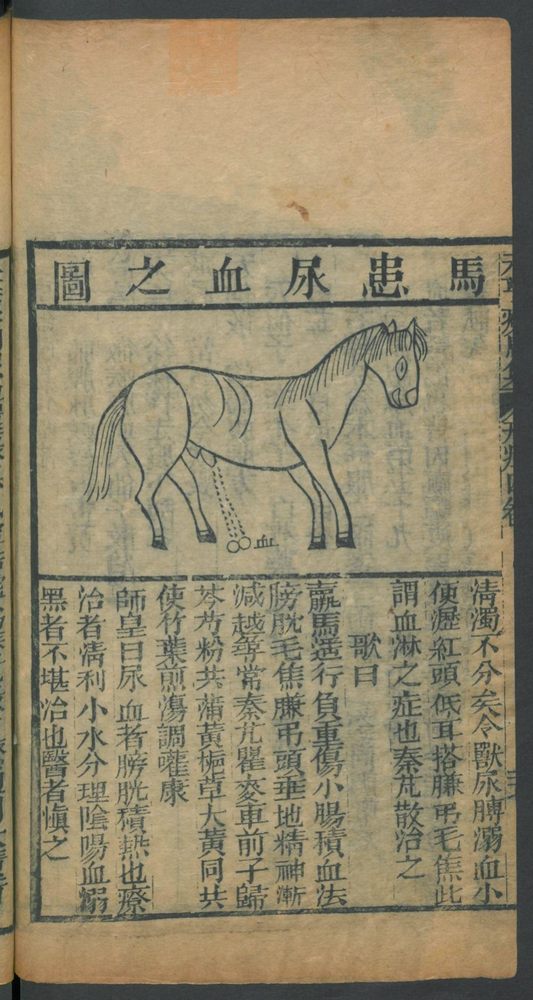 馬患尿血之圖
血
清濁不分矣令獸尿脬溺血小
便澀紅頭低耳搭臁弔毛焦此
謂血淋之症也秦艽散治之
歌曰
羸馬遠行負重傷小腸積血法
膀胱毛焦臁弔頭垂地精神漸
減越尋常秦艽瞿麥車前子歸
芩芍粉共蒲黃梔草大黃同共
使竹葉煎湯調嚾康
師皇曰尿血者膀胱積熱也療
治者清利小水分理陰陽血溺
黑者不堪治也醫者愼之